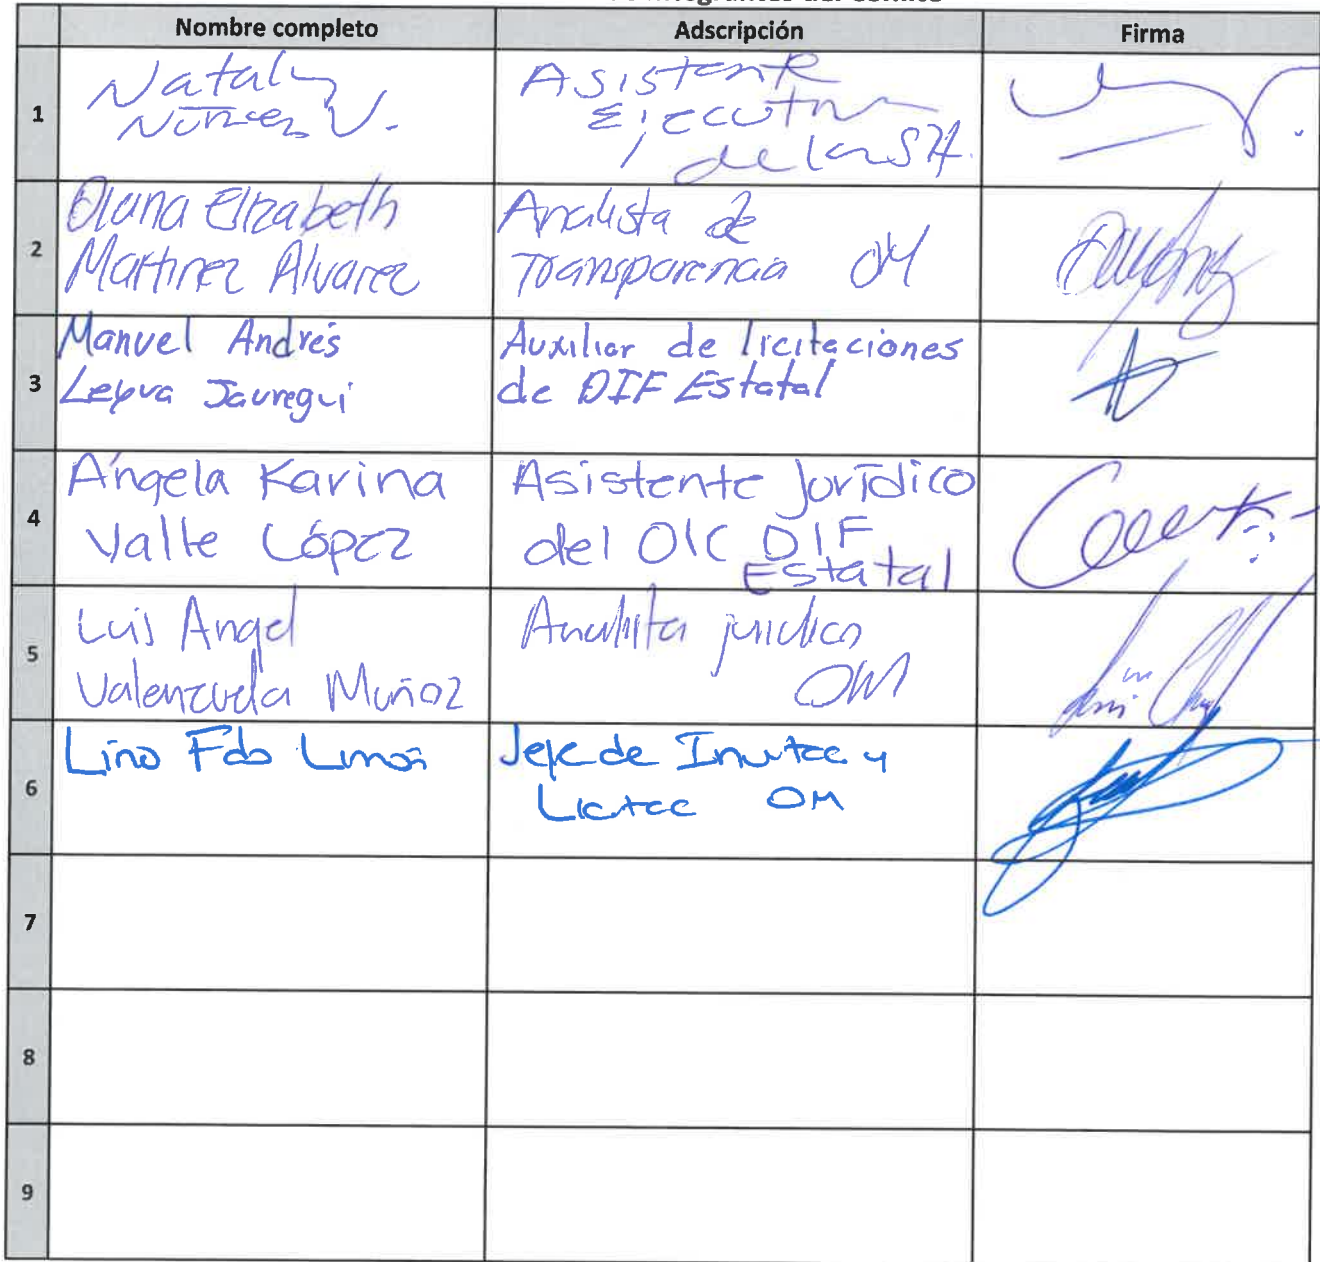 Nombre completo Adscripción Firma
1
Nataly
Núñez V.
Asistente
Ejecutiva
de la SH.
2
Diana Elizabeth
Martinez Alvarez
Analista de
Transparencia OM
3
Manuel Andrés
Leyva Jauregui
Auxiliar de licitaciones
de DIF Estatal
4
Ángela Karina
Valle López
Asistente Jurídico
del OIC DIF
Estatal
5
Luis Angel
Valenzuela Muñoz
Analista juridico
OM
6
Lino Fdo Limón
Jefe de
y
OM
7
8
9